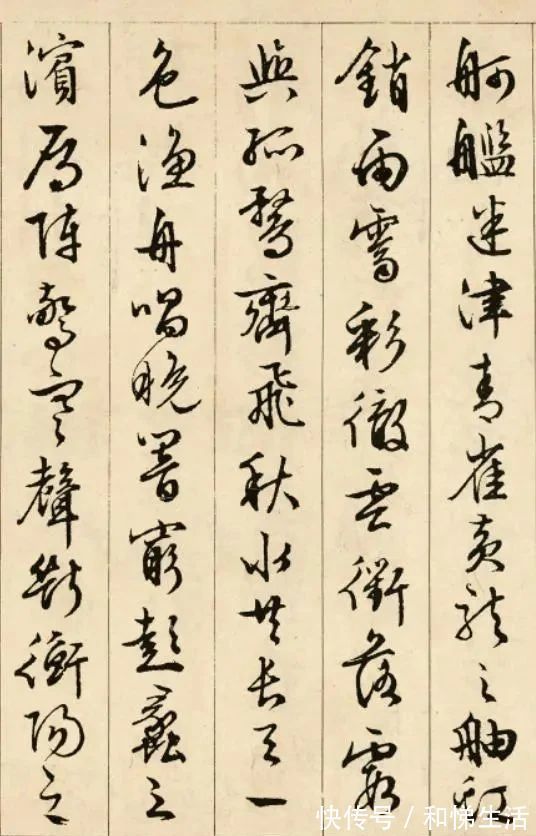 舸艦迷津青雀黃龍之舳虹
銷雨霽彩徹雲衢落霞
與孤鶩齊飛秋水共長天一
色漁舟唱晚響窮彭蠡之
濱雁陣驚寒聲斷衡陽之
快传号 / 和悌生活